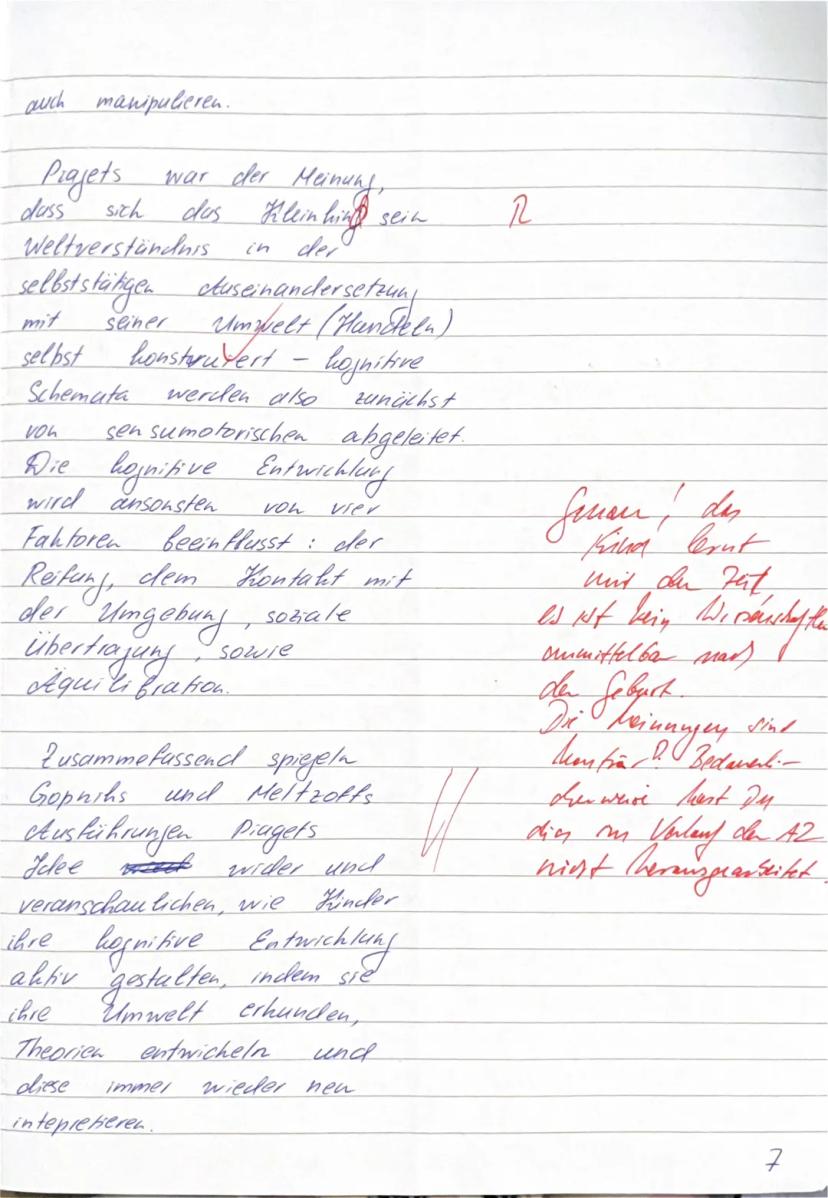 auch manipulieren.
Piagets war der Meinung,
dass sich das Kleinkind sein
R
Weltverständnis in der
selbststätigen Auseinandersetzung
mit seiner Umwelt (Handeln)
selbst konstruiert – kognitive
Schemata werden also zunächst
von sensumotorischen abgeleitet.
Die kognitive Entwicklung
wird ansonsten von vier
Faktoren beeinflusst: der
Reifung, dem Kontakt mit
der Umgebung, soziale
Übertragung, sowie
Äquilibration.
Zusammefassend spiegeln
Gopniks und Meltzoffs
Ausführungen Piagets
Idee wider und
veranschaulichen, wie Kinder
ihre kognitive Entwicklung
aktiv gestalten, indem sie
ihre Umwelt erkunden,
Theorien entwickeln und
diese immer wieder neu
intepretieren.
Genau! das
Kind lernt
mit der Zeit,
es ist kein Wissenschaftler
unmittelbar nach
der Geburt.
Die Meinungen sind
konträr? Bedauerli-
cherweise hast Du
dies im Verlauf der A2
nicht herausgearbeitet.
7